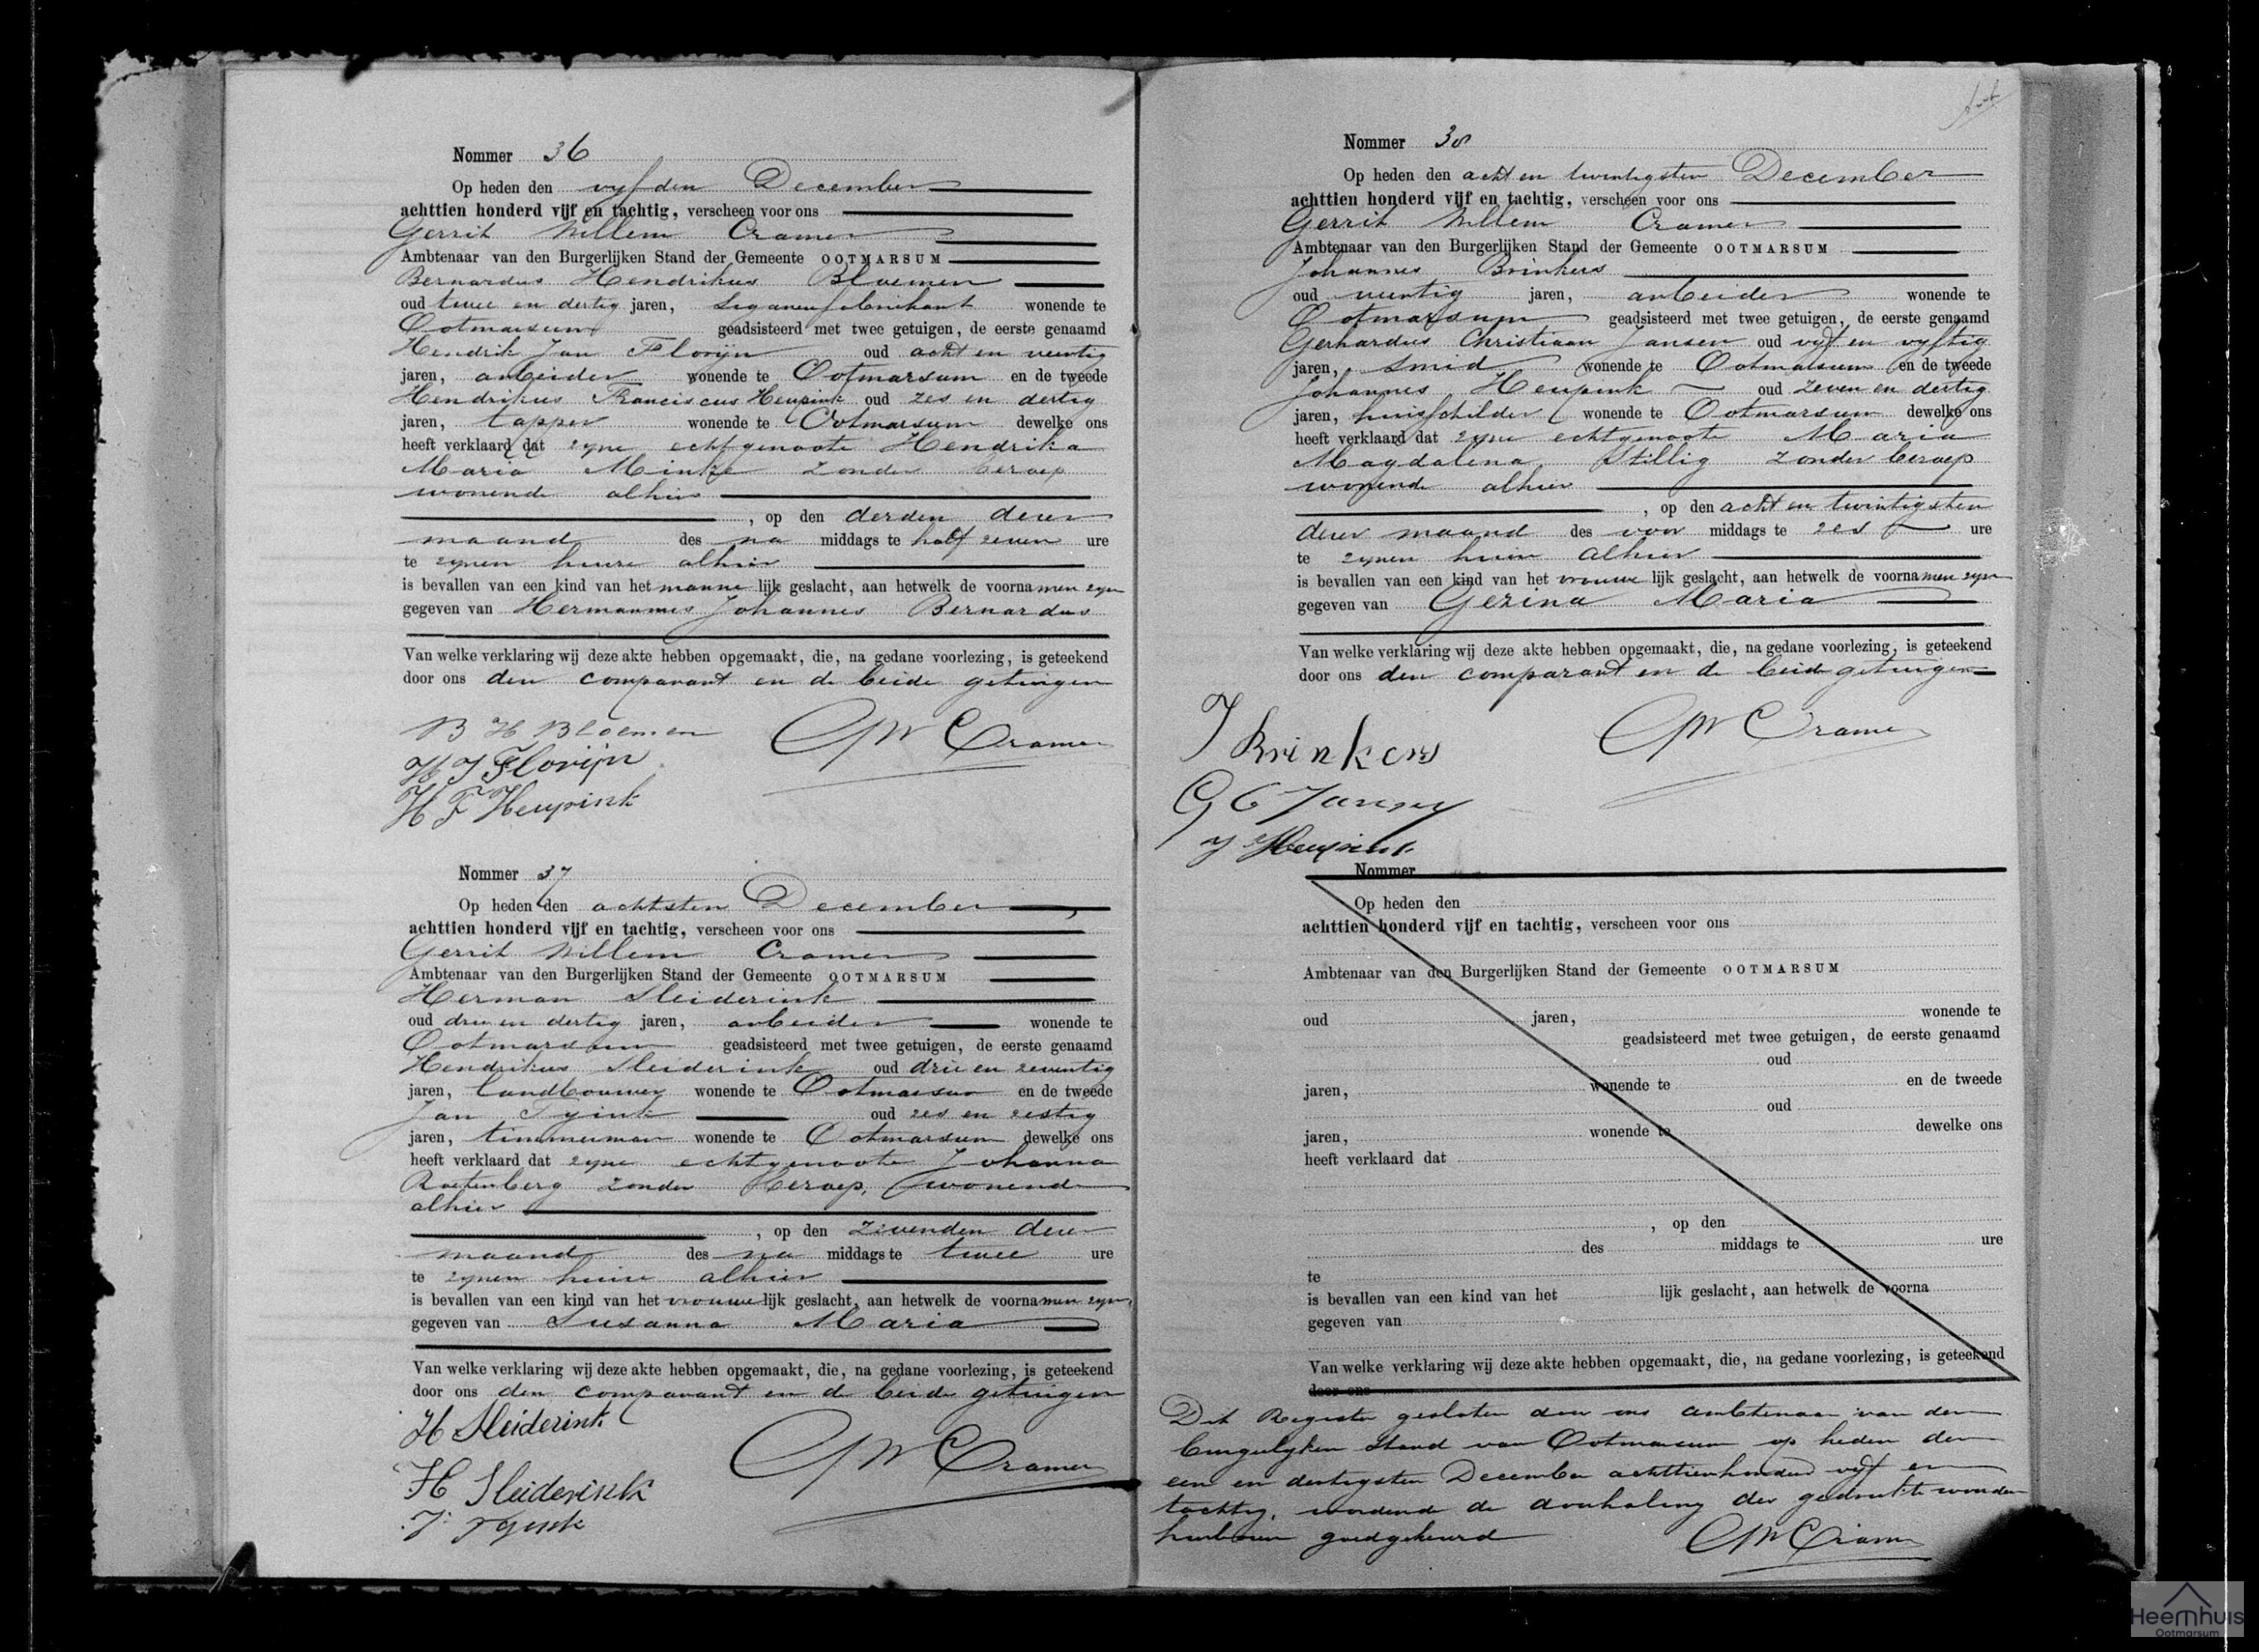 Nommer 36
Op heden den vyfden December
achttien honderd vijf en tachtig, verscheen voor ons
Gerrit Willem Cramer
Ambtenaar van den Burgerlijken Stand der Gemeente OOTMARSUM
Bernardus Hendrikus Bloemen
oud twee en dertig jaren, segarenfabrikant wonende te
Ootmarsum geadsisteerd met twee getuigen, de eerste genaamd
Hendrik Jan Florijn oud acht en
jaren, arbeider wonende te Ootmarsum en de tweede
Hendrikus Franciscus Heupink oud zes en dertig
jaren, tapper wonende te Ootmarsum dewelke ons
heeft verklaard dat zyne echtgenoote Hendrika
Maria zonder beroep
wonende alhier
, op den derden dezer
maand des na middags te half zeven ure
te zynen huize alhier
is bevallen van een kind van het mannelijk geslacht, aan hetwelk de voornamen zyn
gegeven van Hermannus Johannes Bernardus
Van welke verklaring wij deze akte hebben opgemaakt, die, na gedane voorlezing, is geteekend
door ons den comparant en de beide getuigen
B H Bloemen GW Cramer
H J Florijn
H F Heupink
Nommer 37
Op heden den achtsten December
achttien honderd vijf en tachtig, verscheen voor ons
Gerrit Willem Cramer
Ambtenaar van den Burgerlijken Stand der Gemeente OOTMARSUM
Herman Sleiderink
oud drie en dertig jaren, arbeider wonende te
Ootmarsum geadsisteerd met twee getuigen, de eerste genaamd
Hendrikus Sleiderink oud drie en zeventig
jaren, landbouwer wonende te Ootmarsum en de tweede
Jan Tyink oud zes en zestig
jaren, timmerman wonende te Ootmarsum dewelke ons
heeft verklaard dat zyne echtgenoote Johanna
zonder beroep, wonende
alhier
, op den zevenden dezer
maand des na middags te twee ure
te zynen huize alhier
is bevallen van een kind van het vrouwelijk geslacht, aan hetwelk de voornamen zyn
gegeven van Susanna Maria
Van welke verklaring wij deze akte hebben opgemaakt, die, na gedane voorlezing, is geteekend
door ons den comparant en de beide getuigen
H Sleiderink
GW Cramer
H Sleiderink
J Tyink
Nommer 38
Op heden den acht en twintigsten December
achttien honderd vijf en tachtig, verscheen voor ons
Gerrit Willem Cramer
Ambtenaar van den Burgerlijken Stand der Gemeente OOTMARSUM
Johannes Brinkers
oud jaren, arbeider wonende te
Ootmarsum geadsisteerd met twee getuigen, de eerste genaamd
Gerhardus Christiaan Jansen oud vyf en vyftig
jaren, smid wonende te Ootmarsum en de tweede
Johannes Heupink oud zeven en dertig
jaren, huisschilder wonende te Ootmarsum dewelke ons
heeft verklaard dat zyne echtgenoote Maria
Magdalena Stillig zonder beroep
wonende alhier
, op den acht en twintigsten
dezer maand des voor middags te zes ure
te zynen huize alhier
is bevallen van een kind van het vrouwelijk geslacht, aan hetwelk de voornamen zyn
gegeven van Gezina Maria
Van welke verklaring wij deze akte hebben opgemaakt, die, na gedane voorlezing, is geteekend
door ons den comparant en de beide getuigen
J Brinkers GW Cramer
G C Jansen
J Heupink
Nommer
Op heden den
achttien honderd vijf en tachtig, verscheen voor ons
Ambtenaar van den Burgerlijken Stand der Gemeente OOTMARSUM
oud jaren, wonende te
geadsisteerd met twee getuigen, de eerste genaamd
oud
jaren, wonende te en de tweede
oud
jaren, wonende te dewelke ons
heeft verklaard dat
, op den
des middags te ure
te
is bevallen van een kind van het lijk geslacht, aan hetwelk de voorna
gegeven van
Van welke verklaring wij deze akte hebben opgemaakt, die, na gedane voorlezing, is geteekend
door ons
Dit Register gesloten door ons ambtenaar van den
burgerlyken Stand van Ootmarsum op heden den
een en dertigsten December achttienhonderd vyf en
tachtig, wordende de doorhaling der gedrukte woorden
hierboven goedgekeurd GW Cramer
Heemhuis
Ootmarsum